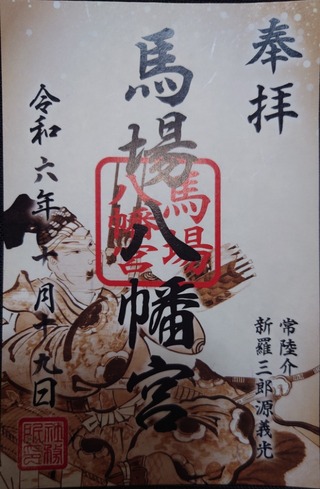 奉拝
馬場八幡宮
馬場
八幡宮
常陸介
新羅三郎源義光
令和六年十月十九日